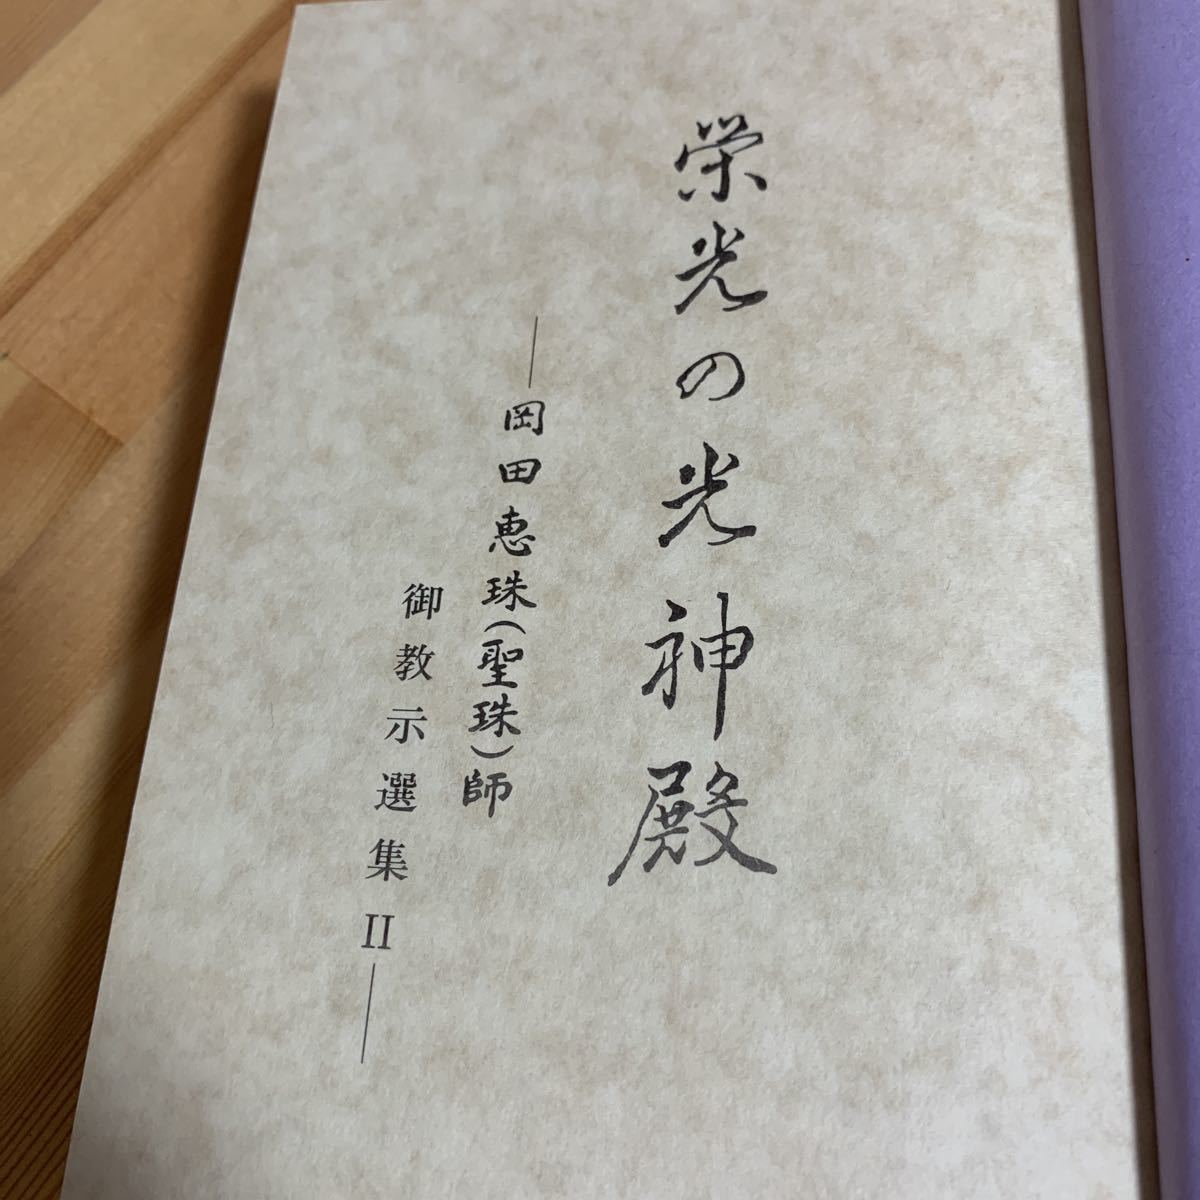 栄光の光神殿
―岡田恵珠(聖珠)師
御教示選集II―